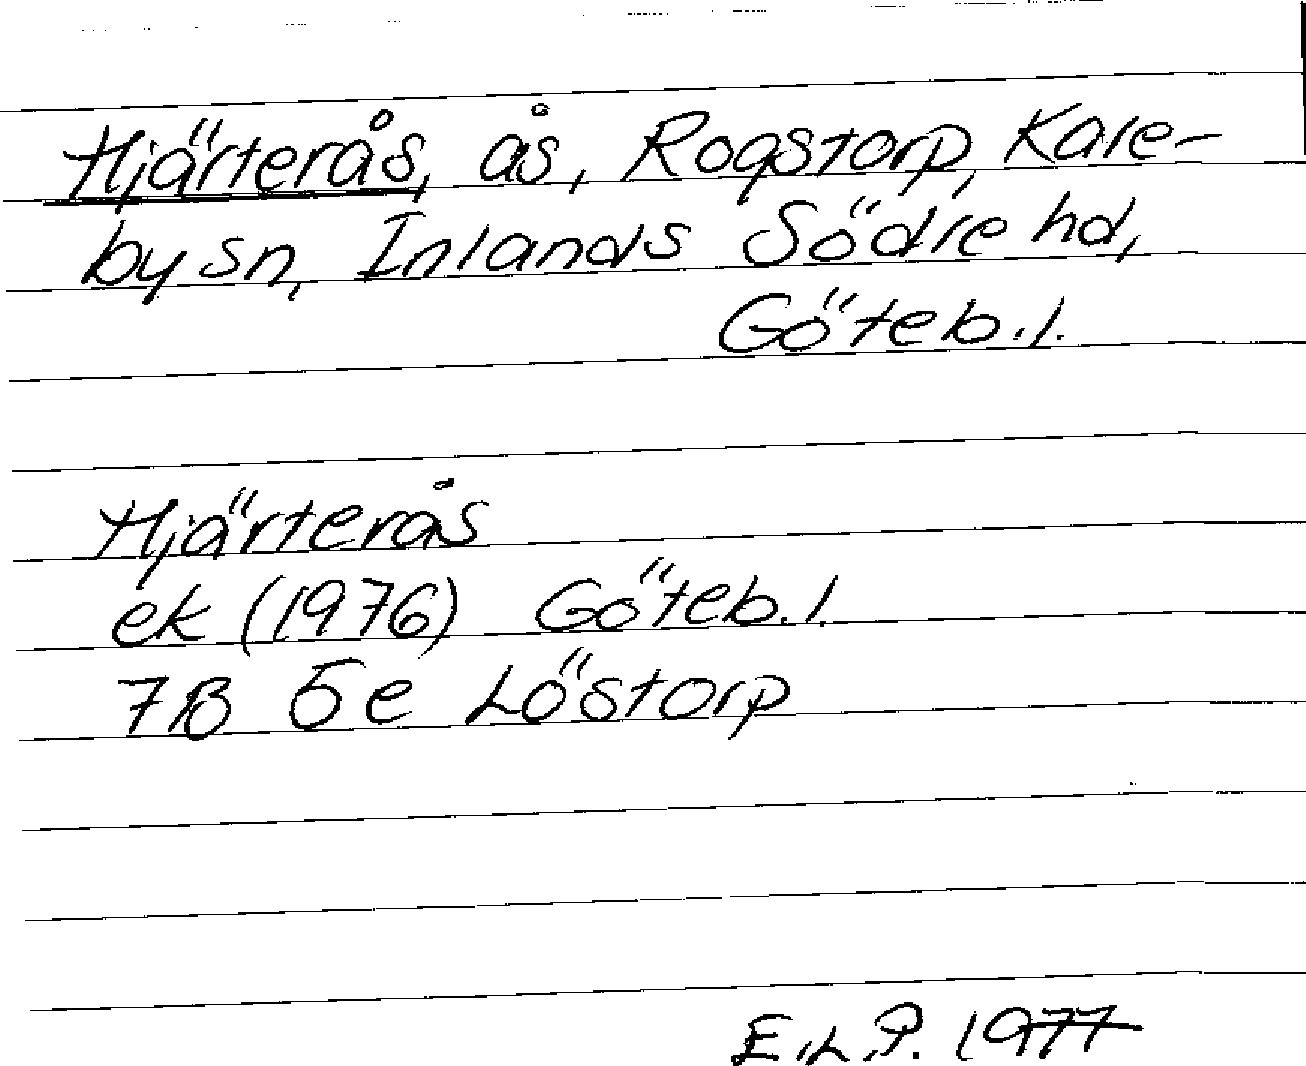 Hjärterås, ås, Rogstorp, Kare-
by sn, Inlands Södre hd,
Göteb. l.
Hjärterås
ek (1976) Göteb. l.
7B 5e Löstorp
E.L.P. 1977